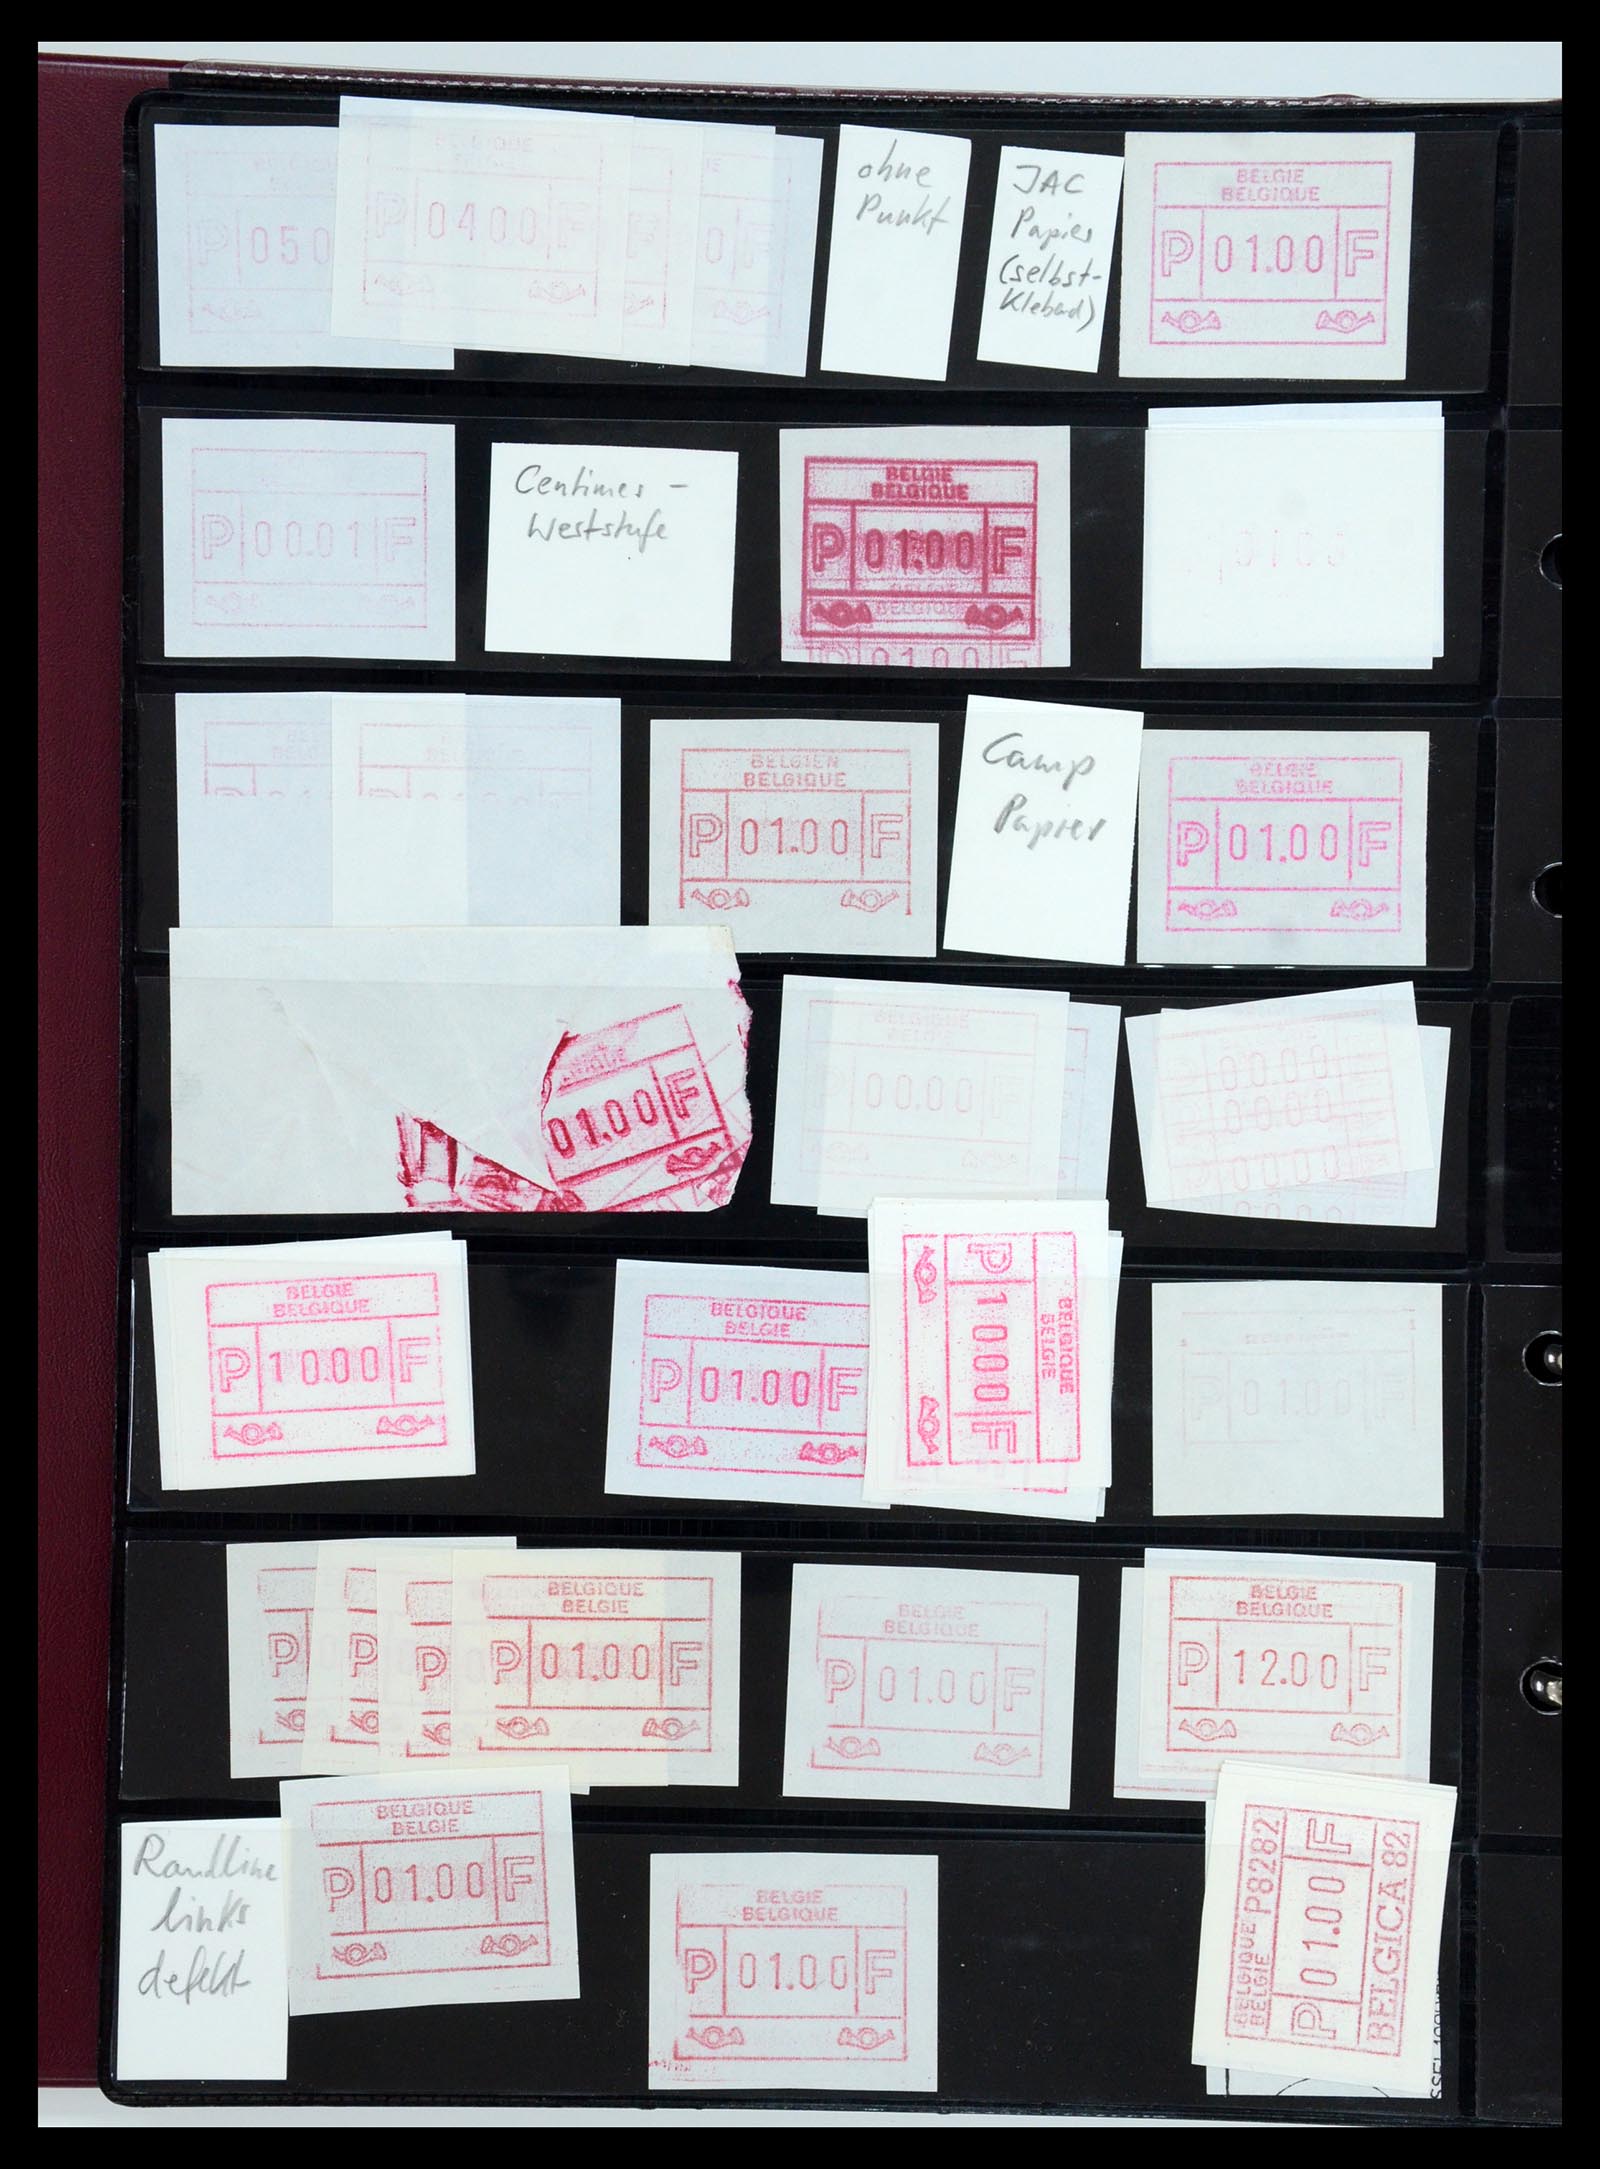 P 050
BELGIQUE
P 0400 F
F
IE
0 F
ohne
Punkt
JAC
Papier
(selbst-
Klebend)
BELGIE
BELGIQUE
P 01.00 F
P 00.01 F
Centimes -
Wertstufe
BELGIE
BELGIQUE
P 01.00 F
BELGIQUE
P 01.00 F
0100
BEL
BELG
BELGIEN
BELGIQUE
P 01.00 F
Camp
Papier
BELGIE
BELGIQUE
P 01.00 F
01.00 F
BELGIQUE
BELGIE
P 00.00 F
00.00
00.00
00.00
00.00
BELGIE
BELGIQUE
P 10.00 F
BELGIQUE
BELGIE
P 01.00 F
BELGIQUE
BELGIE
P 1000 F
P 01.00 F
P
P
P
BELGIQUE
BELGIE
P 01.00 F
BELGIE
BELGIQUE
P 01.00 F
BELGIE
BELGIQUE
P 12.00 F
Randlinie
links
defekt
BELGIQUE
BELGIE
P 01.00 F
BELGIE
BELGIQUE
P 01.00 F
BELGIQUE P8282
BELGIE
P 01.00 F
BELGICA 82